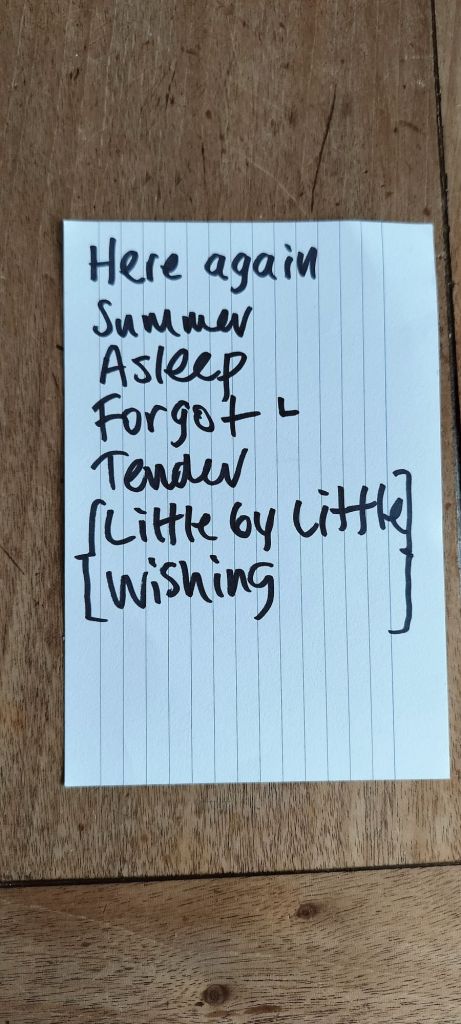 Here again
Summer
Asleep
Forgot L
Tender
[Little by Little]
[Wishing]